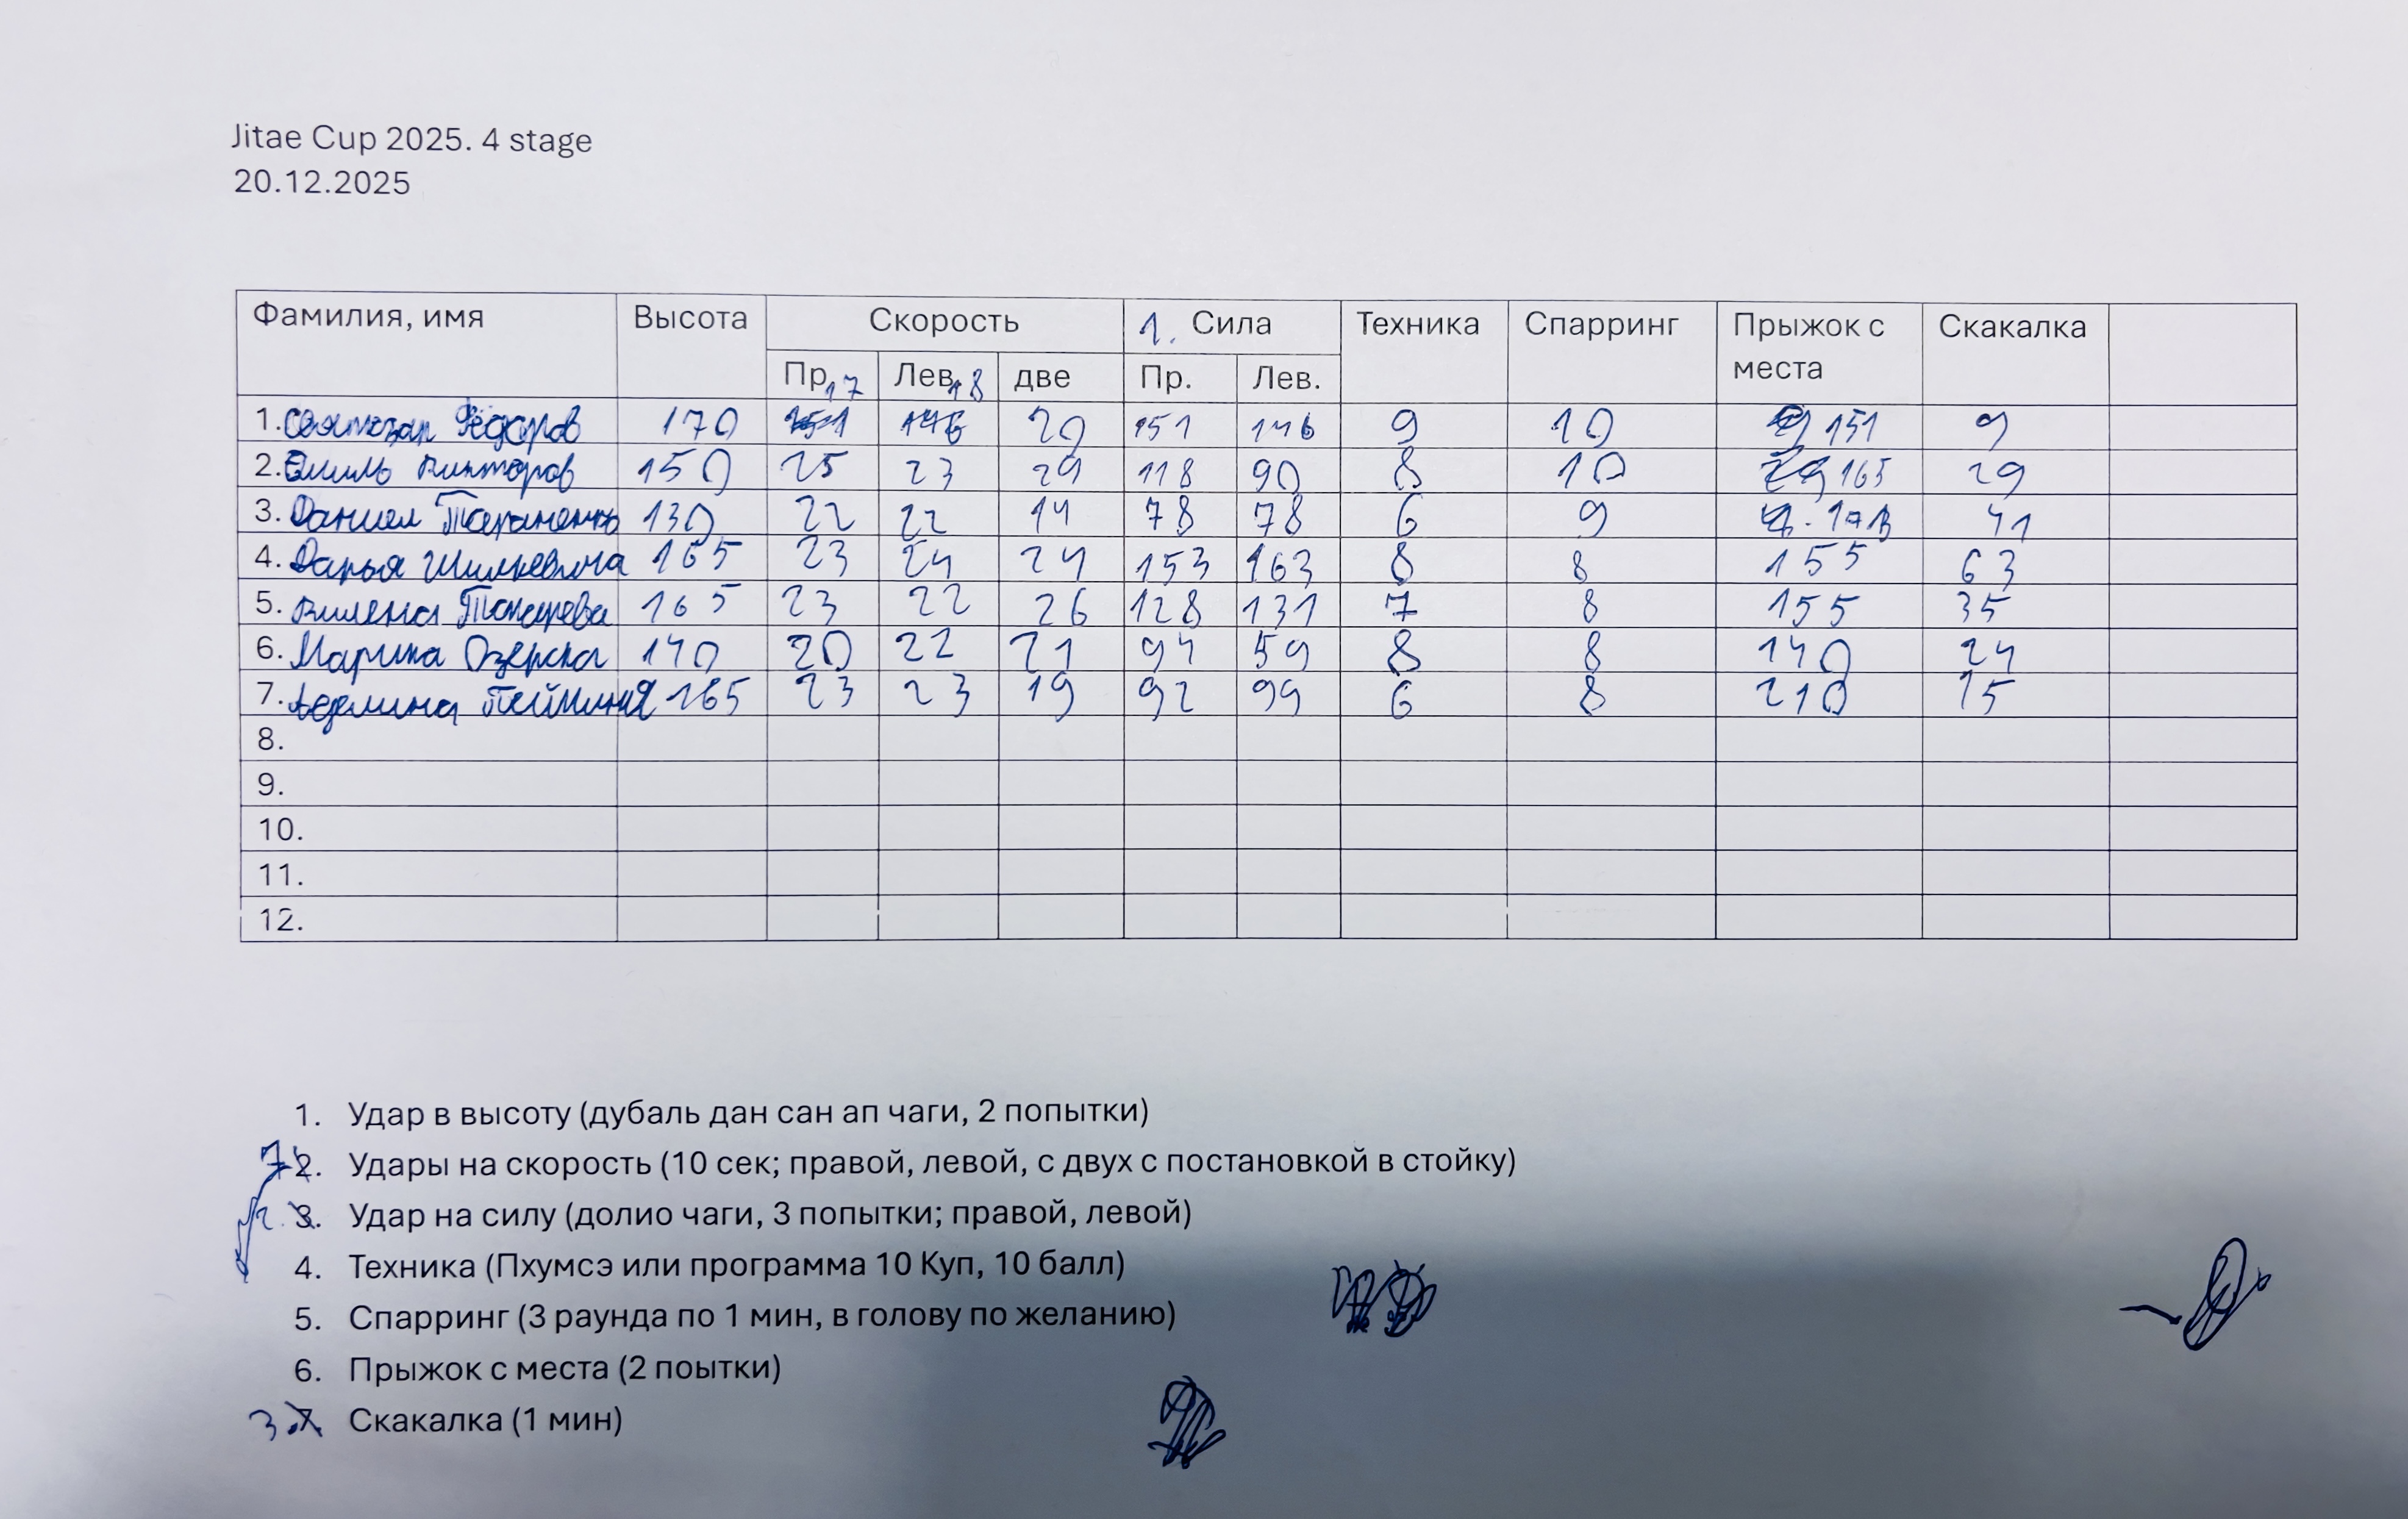 Jitae Cup 2025. 4 stage
20.12.2025
Фамилия, имя Высота Скорость 1. Сила Техника Спарринг Прыжок с места Скакалка
Пр. 17 Лев. 18 две Пр. Лев.
1. Фёдоров 170 151 146 20 151 146 9 10 151 9
2. Эмиль Викторов 150 25 23 29 118 90 8 10 29 165 29
3. Даниел Тараненко 130 22 22 14 78 78 6 9 41
4. Дарья Шилкевича 165 23 24 24 153 163 8 8 155 63
5. Вилена Токарева 165 23 22 26 128 131 7 8 155 35
6. Марина Озерска 140 20 22 21 94 59 8 8 140 24
7. 165 23 23 19 92 99 6 8 210 15
8.
9.
10.
11.
12.
1. Удар в высоту (дубаль дан сан ап чаги, 2 попытки)
2. Удары на скорость (10 сек; правой, левой, с двух с постановкой в стойку)
2. 3. Удар на силу (долио чаги, 3 попытки; правой, левой)
4. Техника (Пхумсэ или программа 10 Куп, 10 балл)
5. Спарринг (3 раунда по 1 мин, в голову по желанию)
6. Прыжок с места (2 поытки)
3. 7. Скакалка (1 мин)